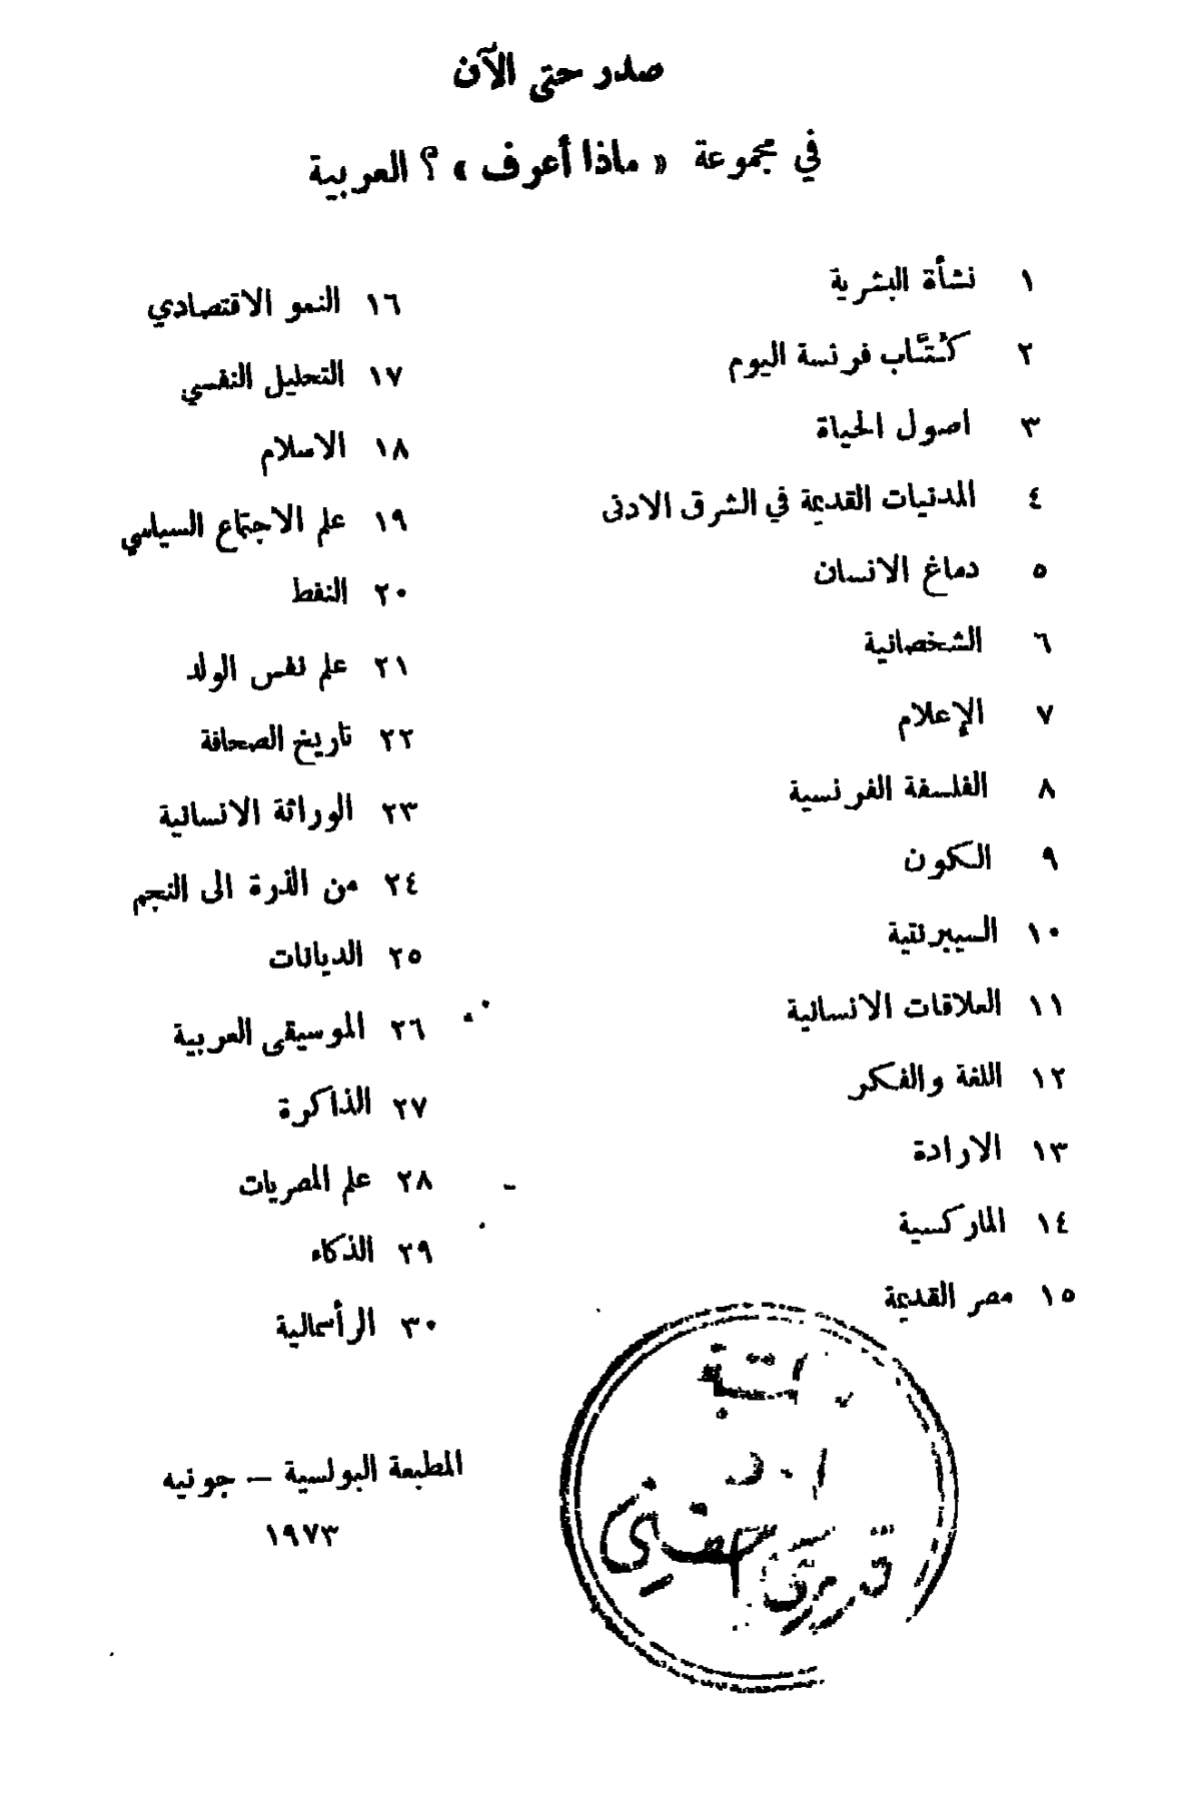 صدر حتى الآن
في مجموعة « ماذا أعرف » ؟ العربية
١ نشأة البشرية
٢ كُتَّاب فرنسة اليوم
٣ اصول الحياة
٤ المدنيات القديمة في الشرق الادنى
٥ دماغ الانسان
٦ الشخصانية
٧ الإعلام
٨ الفلسفة الفرنسية
٩ الكون
١٠ السيبرنتية
١١ العلاقات الانسانية
١٢ اللغة والفكر
١٣ الارادة
١٤ الماركسية
١٥ مصر القديمة
١٦ النمو الاقتصادي
١٧ التحليل النفسي
١٨ الاسلام
١٩ علم الاجتماع السياسي
٢٠ النفط
٢١ علم نفس الولد
٢٢ تاريخ الصحافة
٢٣ الوراثة الانسانية
٢٤ من الذرة الى النجم
٢٥ الديانات
٢٦ الموسيقى العربية
٢٧ الذاكرة
٢٨ علم المصريات
٢٩ الذكاء
٣٠ الرأسمالية
المطبعة البولسية — جونيه
١٩٧٣